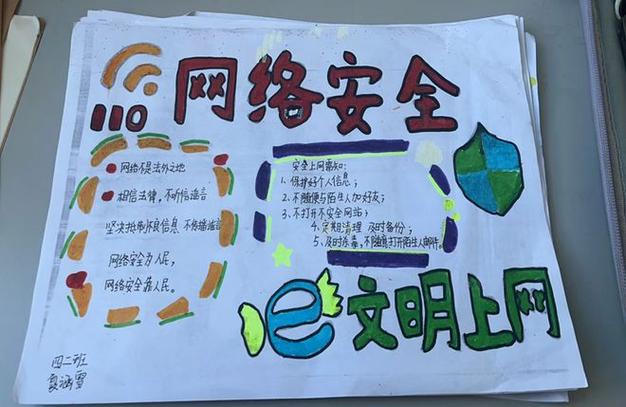 网络安全
110
网络不是法外之地
相信法律，不听信谣言
坚决抵制不良信息 不传播谣言
网络安全为人民，
网络安全靠人民。
安全上网需知：
1、保护好个人信息；
2、不随便与陌生人加好友；
3、不打开不安全网站；
4、定期清理 及时备份；
5、及时杀毒，不随意打开陌生人邮件。
e文明上网
四二班